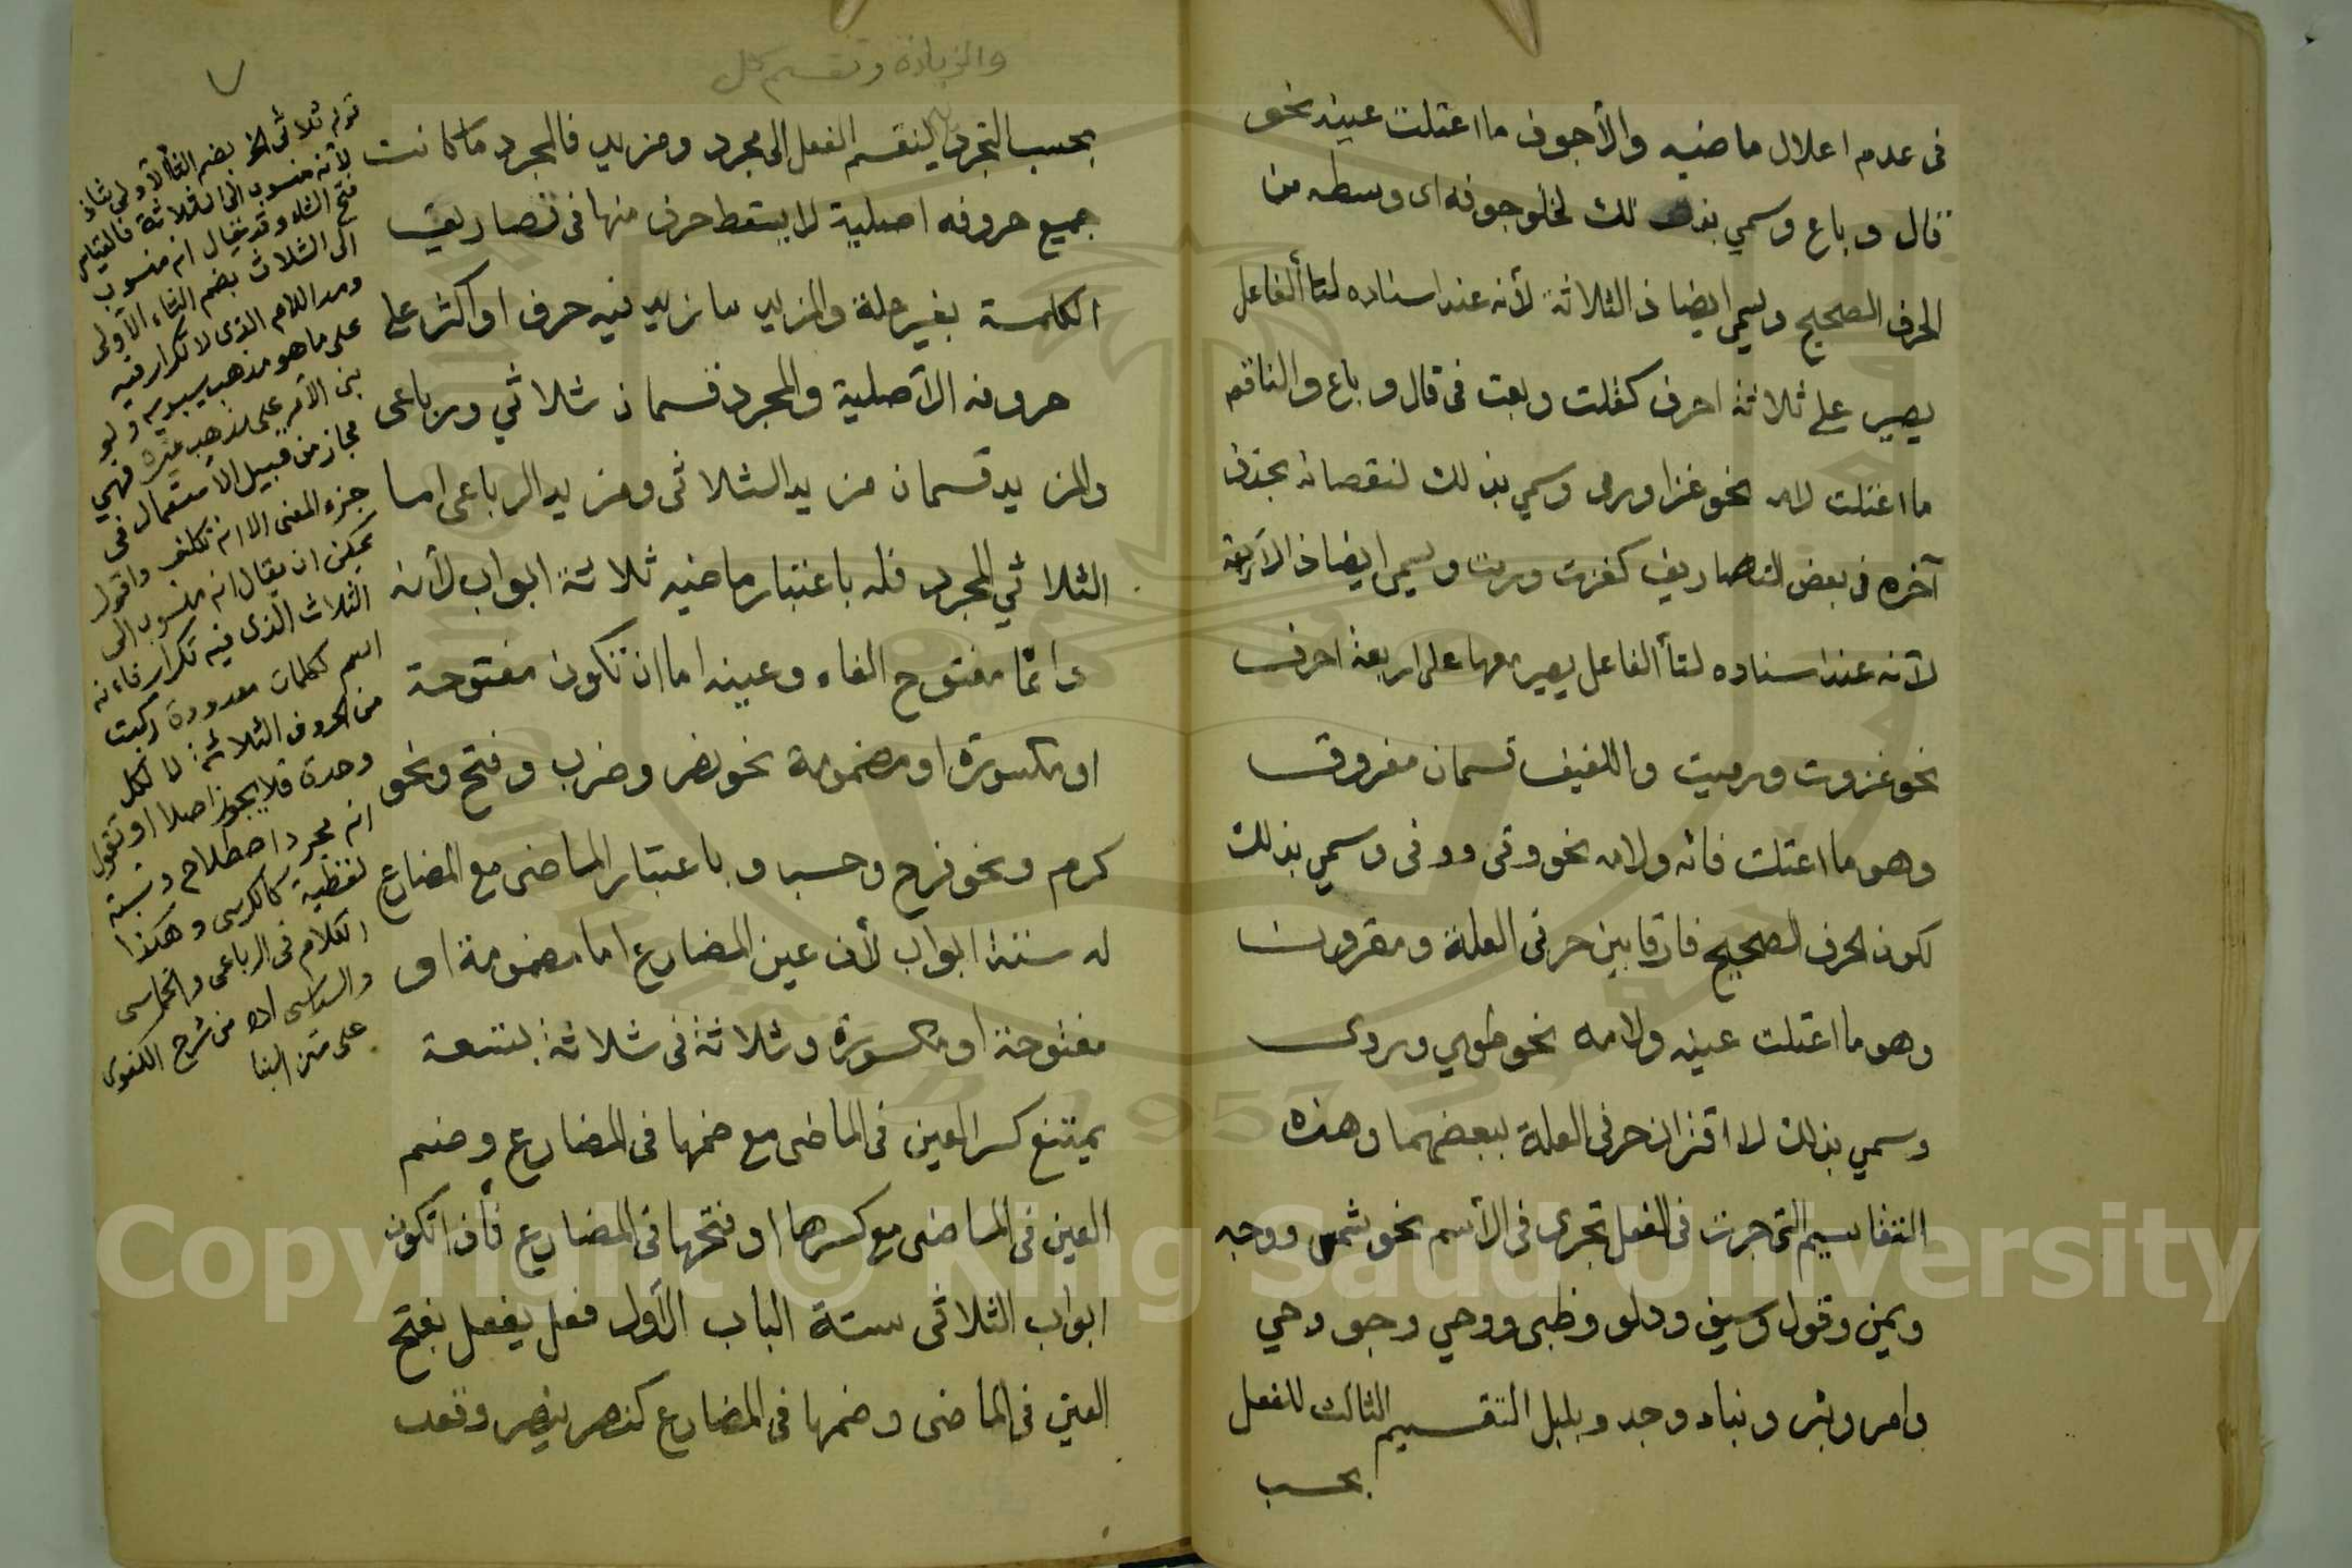 فى عدم اعلال ماضيه والأجوف ما اعتلت عينه نحو
قال وباع وسمي بذلك لخلو جوفه اى وسطه من
الحرف الصحيح ويسمى ايضا ذا الثلاثة لأنه عند اسناده لتأ الفاعل
يصير على ثلاثة احرف كقلت وبعت فى قال وباع والناقص
ما اعتلت لامه نحو غزا ورمى وسمي بذلك لنقصانه بحذف
آخره فى بعض التصاريف كغزت ورمت ويسمى ايضا ذا الأربعة
لأنه عند اسناده لتأ الفاعل يصير معها على اربعة احرف
نحو غزوت ورميت واللفيف قسمان مفروق
وهو ما اعتلت فائه ولامه نحو وقى ووفى وسمي بذلك
لكون الحرف الصحيح فارقا بين حرفى العلة ومقرون
وهو ما اعتلت عينه ولامه نحو طوي وروى
وسمي بذلك لاقتران حرفى العلة ببعضهما وهذه
التقاسيم التى جرت فى الفعل تجرى فى الأسم نحو شمس ووجه
ويمن وقول وسيف ودلو وظبى ووحي وجو وحي
وامر وبئر ونباء وجد وبلبل التقسيم الثالث للفعل
بحسب
٧
والزيادة وتقسم كل
بحسب التجرد ينقسم الفعل الى مجرد ومزيد فالمجرد ما كانت
جميع حروفه اصلية لا يسقط حرف منها فى تصاريف
الكلمة بغير علة والمزيد ما زيد فيه حرف او اكثر على
حروفه الأصلية والمجرد قسمان ثلاثي ورباعى
والمزيد قسمان مزيد الثلاثى ومزيد الرباعى اما
الثلاثي المجرد فله باعتبار ماضيه ثلاثة ابواب لأنه
دائما مفتوح الفاء وعينه اما ان تكون مفتوحة
او مكسورة او مضمومة نحو نصر وضرب وفتح ونحو
كرم ونحو فرح وحسب وباعتبار الماضى مع المضارع
له ستة ابواب لأن عين المضارع اما مضمومة او
مفتوحة او مكسورة وثلاثة فى ثلاثة بتسعة
يمتنع كسر العين فى الماضى مع ضمها فى المضارع وضم
العين فى الماضى مع كسرها او فتحها فى المضارع فأذا تكون
ابواب الثلاثى ستة الباب الأول فعل يفعل بفتح
العين فى الماضى وضمها فى المضارع كنصر ينصر وقعد
قوله ثلاثى الخ بضم الثأ الأولى شاذ
لأنه منسوب الى الثلاثة فالقياس
فتح الثاء وقد يقال انه منسوب
الى الثلاث بضم الثاء الأولى
ومد اللام الذى لا تكرار فيه
على ما هو مذهب سيبويه ولو
بنى الأمر على مذهب غيره فهي
مجاز من قبيل الأستعمال فى
جزء المعنى الا انه تكلف واقول
يمكن ان يقال انه منسوب الى
الثلاث الذى فيه تكرار فاءنه
اسم لكلمات معدودة ركبت
من الحروف الثلاثة لا لكل
وحدة فلا يجوز اصلا او نقول
انه مجرد اصطلاح ونسبته
لفظية كالكرسى وهكذا
الكلام فى الرباعى والخماسى
والسداسى اه من شرح الكفوى
على متن البنا
Copyright © King Saud University
1957